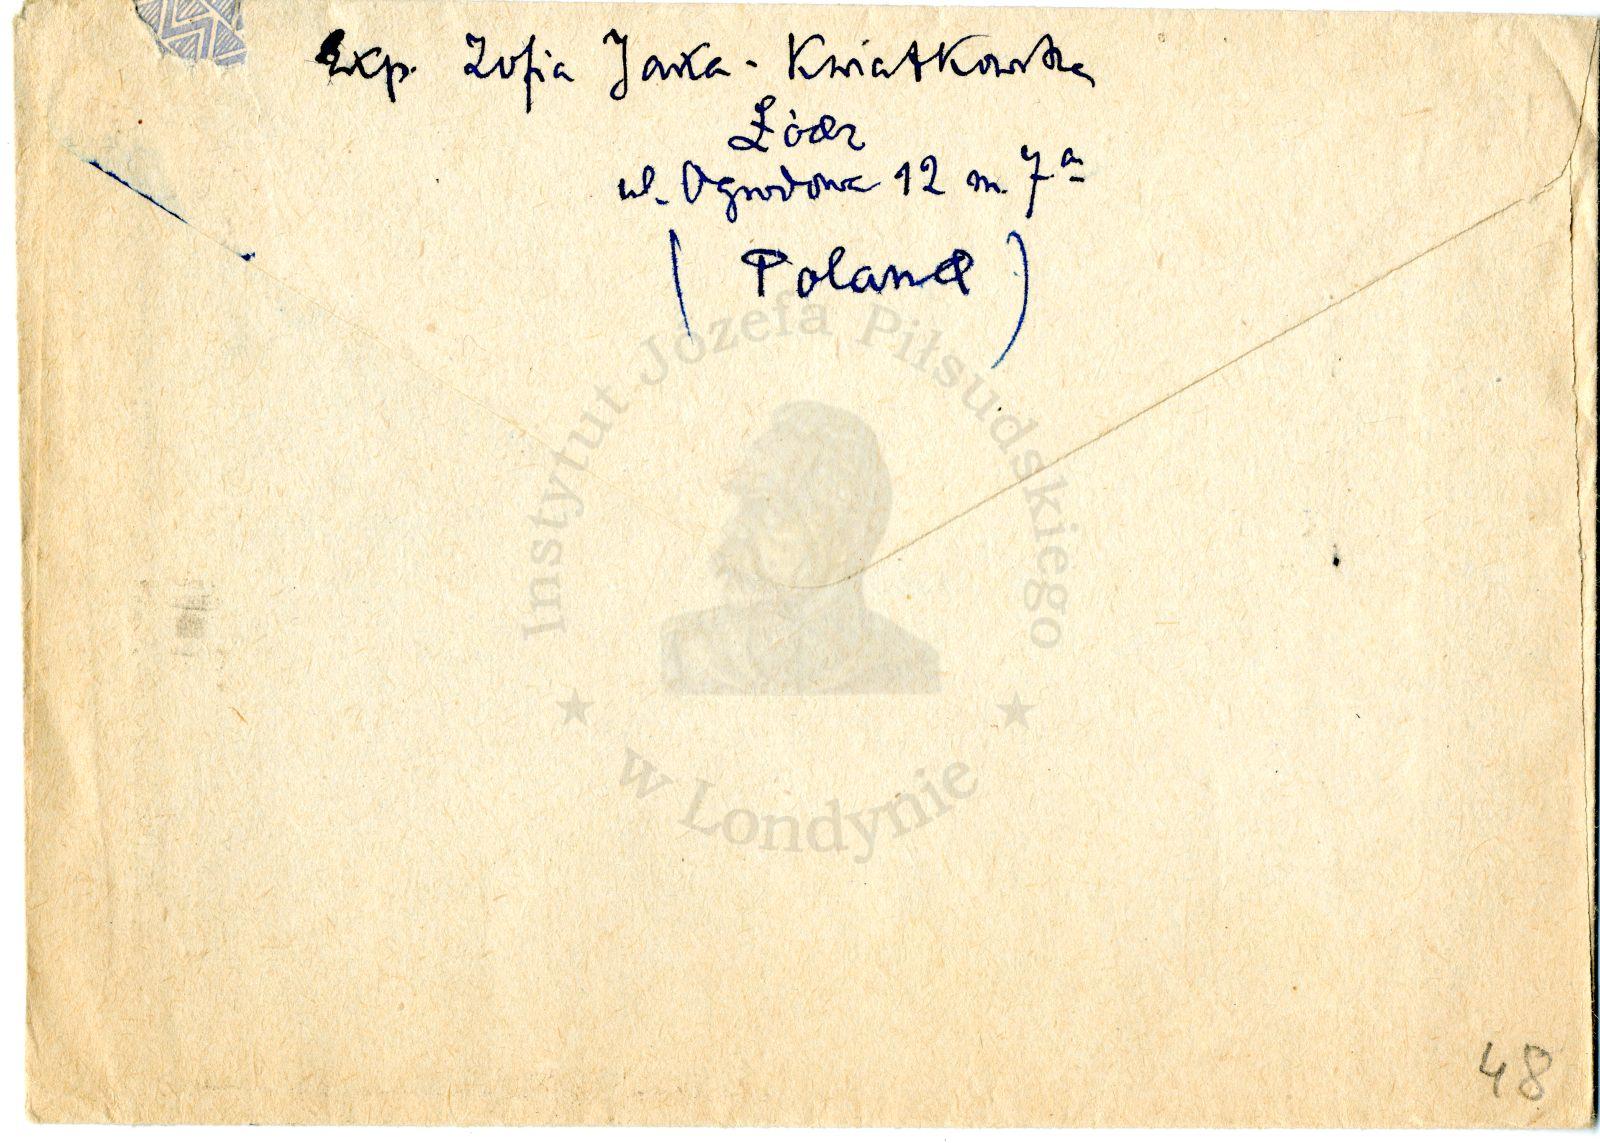 Exp. Zofia Jaxa-Kwiatkowska
Łódź
ul. Ogrodowa 12 m. 7a
(Poland)
Instytut Józefa Piłsudskiego
w Londynie
48